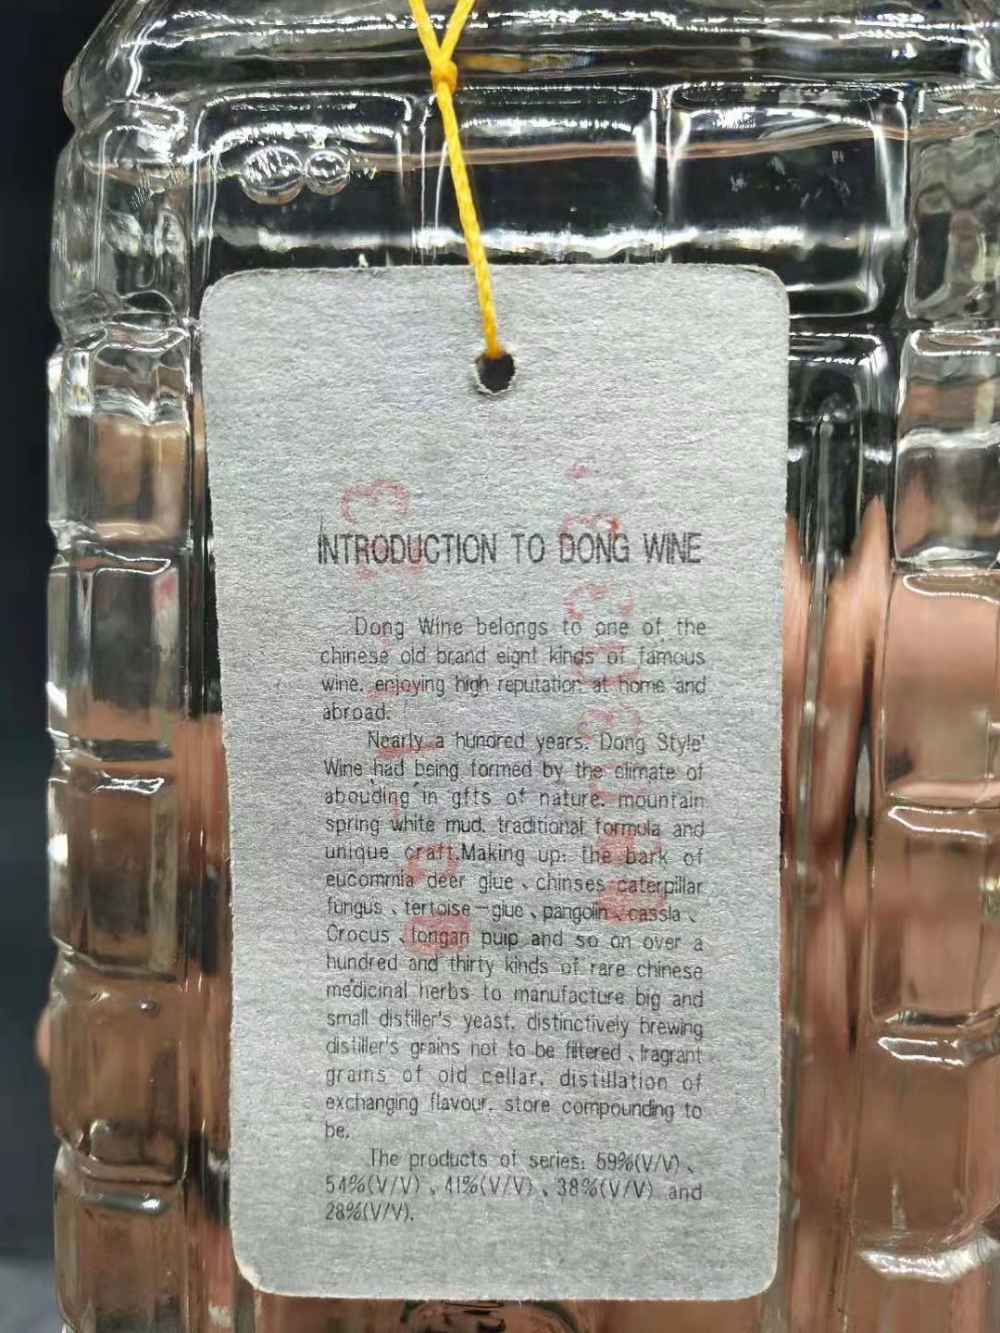 INTRODUCTION TO DONG WINE
Dong Wine belongs to one of the
chinese old brand eight kinds of famous
wine, enjoying high reputation at home and
abroad.
Nearly a hundred years, Dong Style'
Wine had being formed by the climate of
abouding in gfts of nature, mountain
spring white mud, traditional formula and
unique craft.Making up: the bark of
eucommia deer glue、chinses caterpillar
fungus、tertoise-glue、pangolin、cassla、
Crocus、longan puip and so on over a
hundred and thirty kinds of rare chinese
medicinal herbs to manufacture big and
small distiller's yeast, distinctively brewing
distiller's grains not to be filtered、fragrant
grains of old cellar, distillation of
exchanging flavour, store compounding to
be.
The products of series: 59%(V/V)、
54%(V/V)、41%(V/V)、38%(V/V) and
28%(V/V).